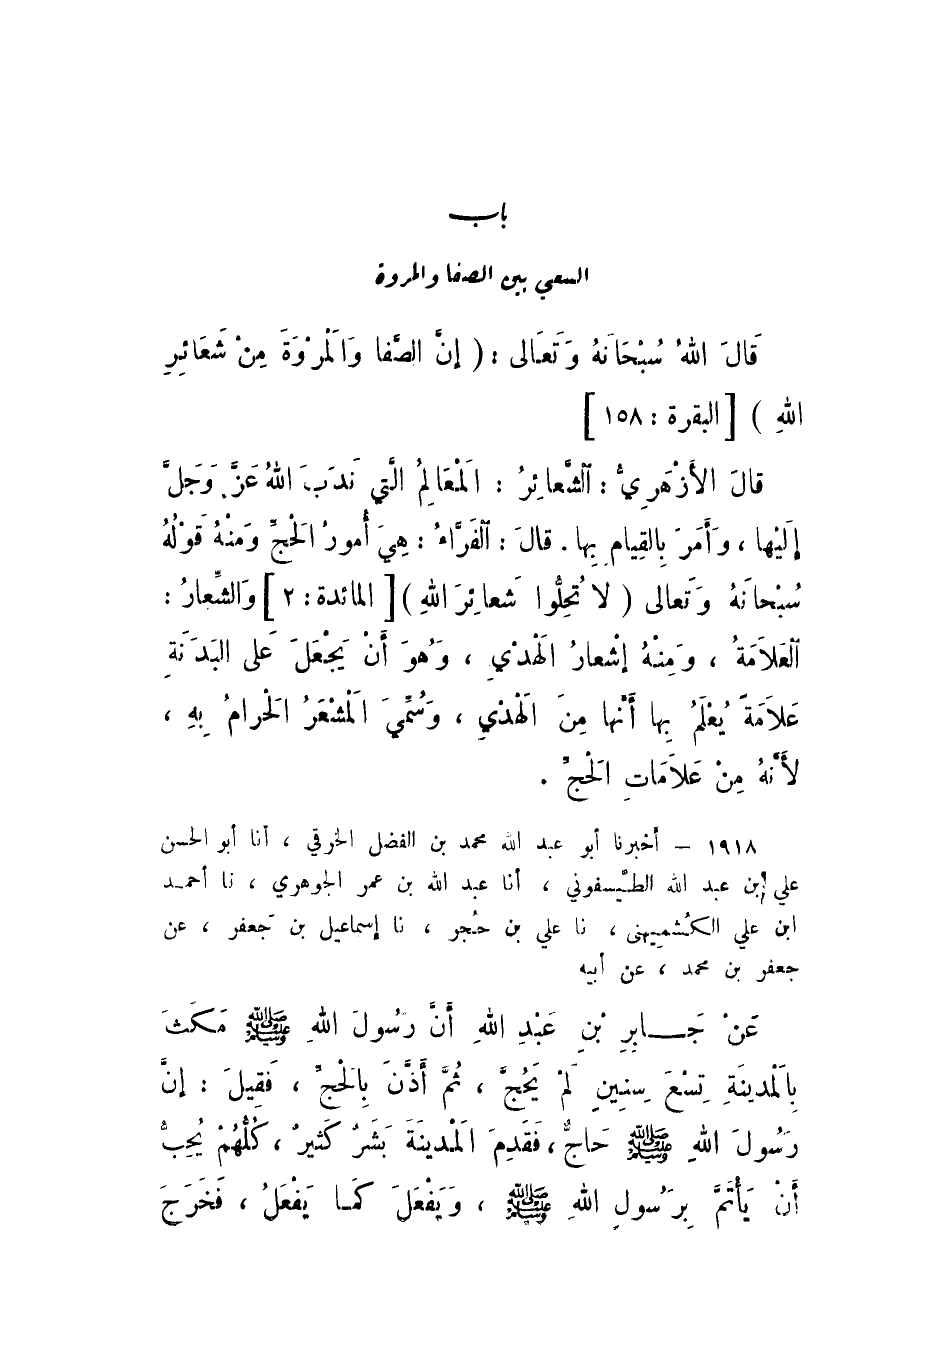 باب
السعي بين الصفا والمروة
قَالَ اللهُ سُبْحَانَهُ وَتَعَالَى : ( إِنَّ الصَّفا وَالْمَرْوَةَ مِنْ شَعَائِرِ
اللهِ ) [ البقرة : ١٥٨ ]
قالَ الأَزْهَرِيُّ : الشَّعائِرُ : الْمَعَالِمُ الَّتِي نَدَبَ اللهُ عَزَّ وَجَلَّ
إِلَيْها ، وَأَمَرَ بِالقِيامِ بِها . قالَ : الْفَرَّاءُ : هِيَ أُمورُ الْحَجِّ وَمِنْهُ قَوْلُهُ
سُبْحانَهُ وَتَعالى ( لا تُحِلُّوا شَعائِرَ اللهِ ) [ المائدة : ٢ ] وَالشِّعارُ :
الْعَلاَمَةُ ، وَمِنْهُ إِشْعارُ الْهَدْيِ ، وَهُوَ أَنْ يَجْعَلَ عَلى البَدَنَةِ
عَلاَمَةً يُعْلَمُ بِها أَنَّها مِنَ الْهَدْيِ ، وَسُمِّيَ الْمَشْعَرُ الْحَرامُ بِهِ ،
لأَنَّهُ مِنْ عَلاَمَاتِ الْحَجِّ .
١٩١٨ – أخبرنا أبو عبد الله محمد بن الفضل الخرقي ، أنا أبو الحسن
علي بن عبد الله الطَّيسفوني ، أنا عبد الله بن عمر الجوهري ، نا أحمد
ابن علي الكُشمِيهني ، نا علي بن حُجر ، نا إسماعيل بن جَعفر ، عن
جعفر بن محمد ، عن أبيه
عَنْ جَابِرِ بْنِ عَبْدِ اللهِ أَنَّ رَسُولَ اللهِ ﷺ مَكَثَ
بِالْمَدينَةِ تِسْعَ سِنِينٍ لَمْ يَحُجَّ ، ثُمَّ أَذَّنَ بِالْحَجِّ ، فَقِيلَ : إِنَّ
رَسُولَ اللهِ ﷺ حَاجٌّ ، فَقَدِمَ الْمَدينَةَ بَشَرٌ كَثيرٌ ، كُلُّهُمْ يُحِبُّ
أَنْ يَأْتَمَّ بِرَسُولِ اللهِ ﷺ ، وَيَفْعَلَ كَمَا يَفْعَلُ ، فَخَرَجَ